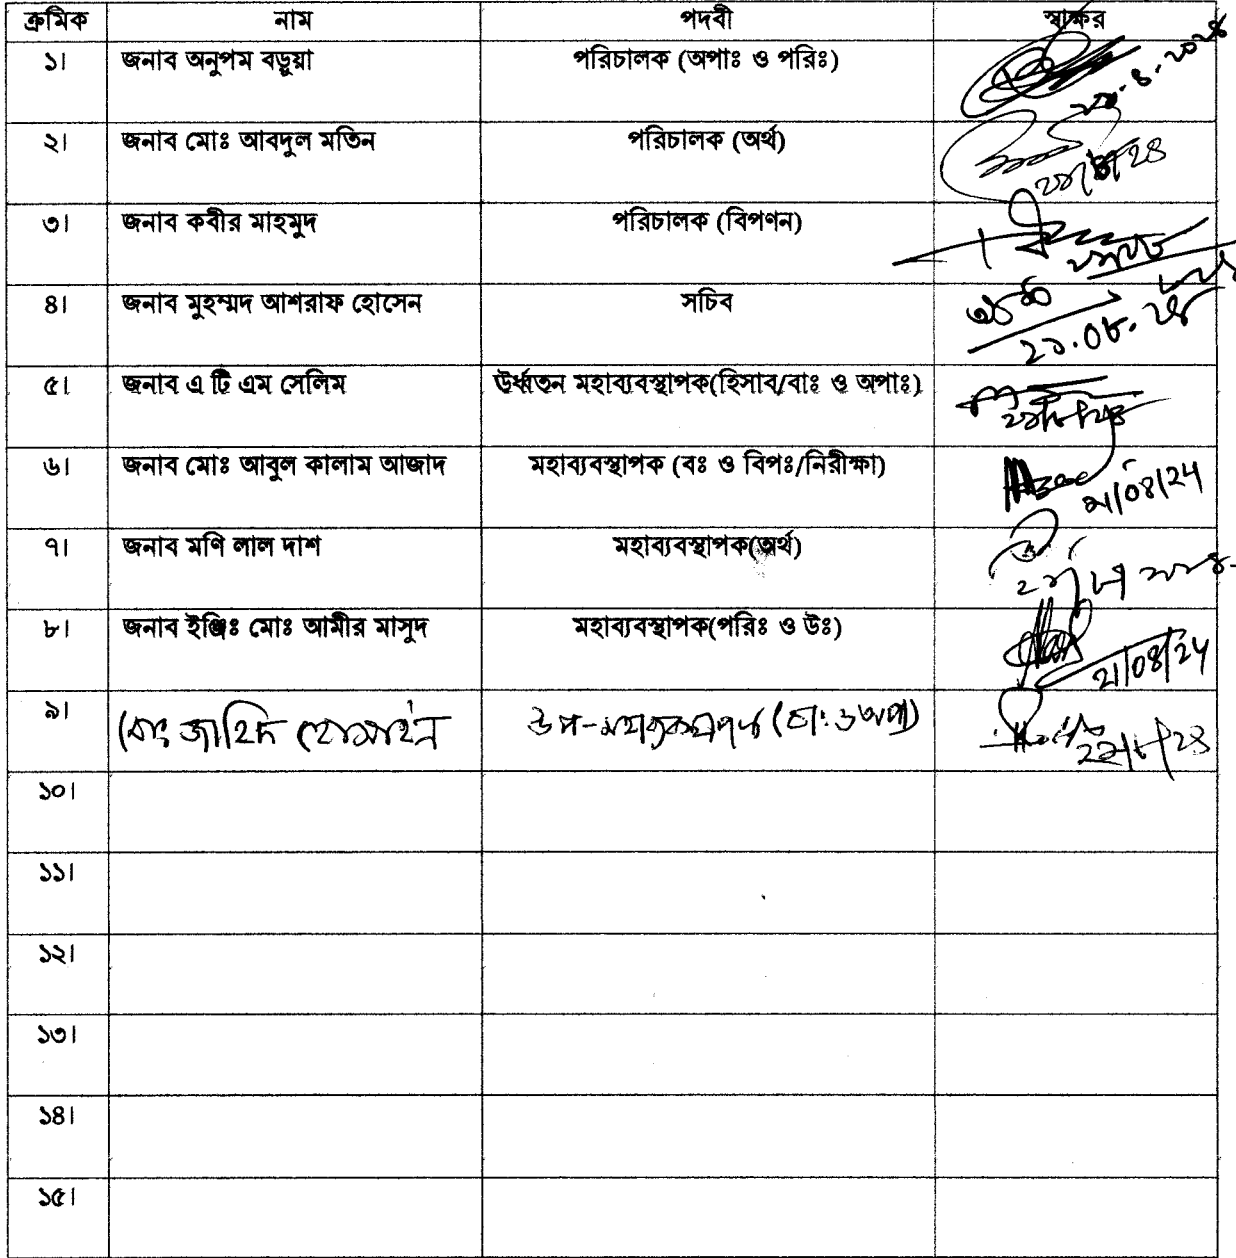 ক্রমিক নাম পদবী স্বাক্ষর
১। জনাব অনুপম বড়ুয়া পরিচালক (অপাঃ ও পরিঃ)
২। জনাব মোঃ আবদুল মতিন পরিচালক (অর্থ)
৩। জনাব কবীর মাহমুদ পরিচালক (বিপণন)
৪। জনাব মুহম্মদ আশরাফ হোসেন সচিব
২১.০৮.২৪
৫। জনাব এ টি এম সেলিম উর্ধ্বতন মহাব্যবস্থাপক(হিসাব/বাঃ ও অপাঃ)
৬। জনাব মোঃ আবুল কালাম আজাদ মহাব্যবস্থাপক (বঃ ও বিপঃ/নিরীক্ষা)
21/08/24
৭। জনাব মণি লাল দাশ মহাব্যবস্থাপক(অর্থ)
৮। জনাব ইঞ্জিঃ মোঃ আমীর মাসুদ মহাব্যবস্থাপক(পরিঃ ও উঃ)
21/08/24
৯। মোঃ জাহিদ হোসাইন উপ-মহাব্যবস্থাপক (বাঃ ও অপাঃ)
১০।
১১।
১২।
১৩।
১৪।
১৫।